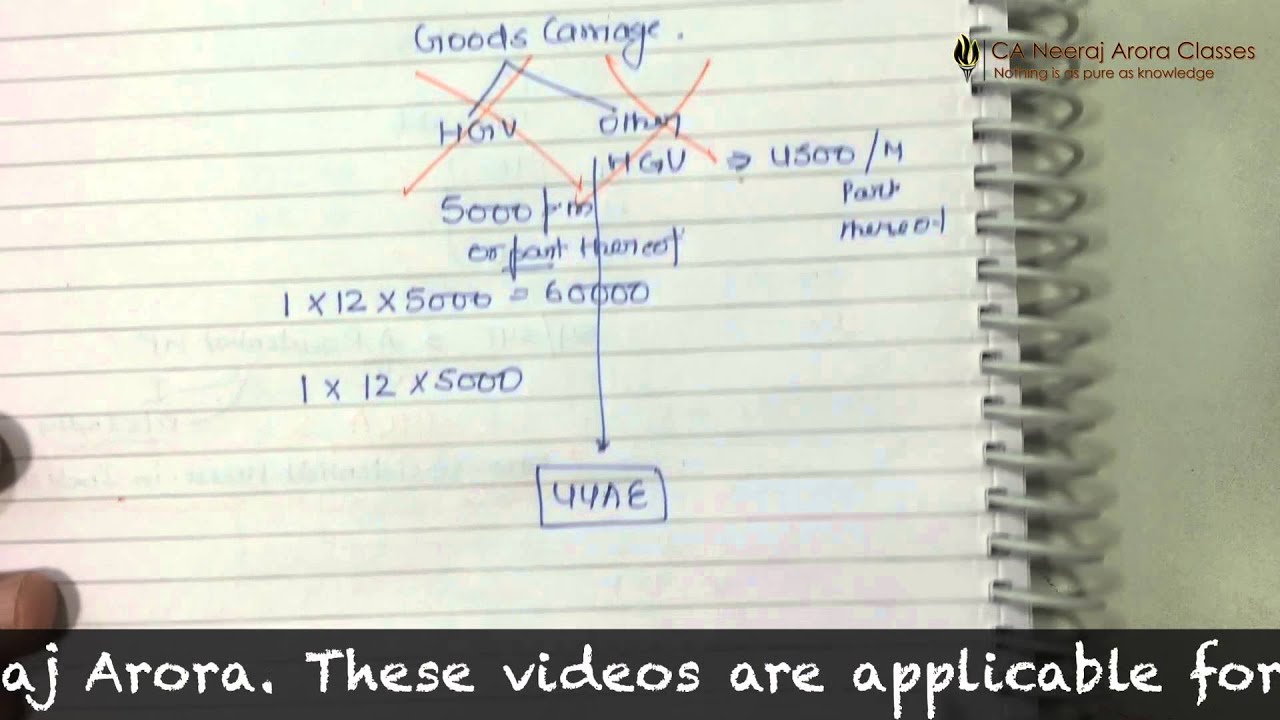 Goods Carriage.
CA Neeraj Arora Classes
Nothing is as pure as knowledge
HGV other
HGV => 4500/M
Part
thereof
5000 p.m
or part thereof
1 x 12 x 5000 = 60000
1 x 12 x 5000
44AE
aj Arora. These videos are applicable for